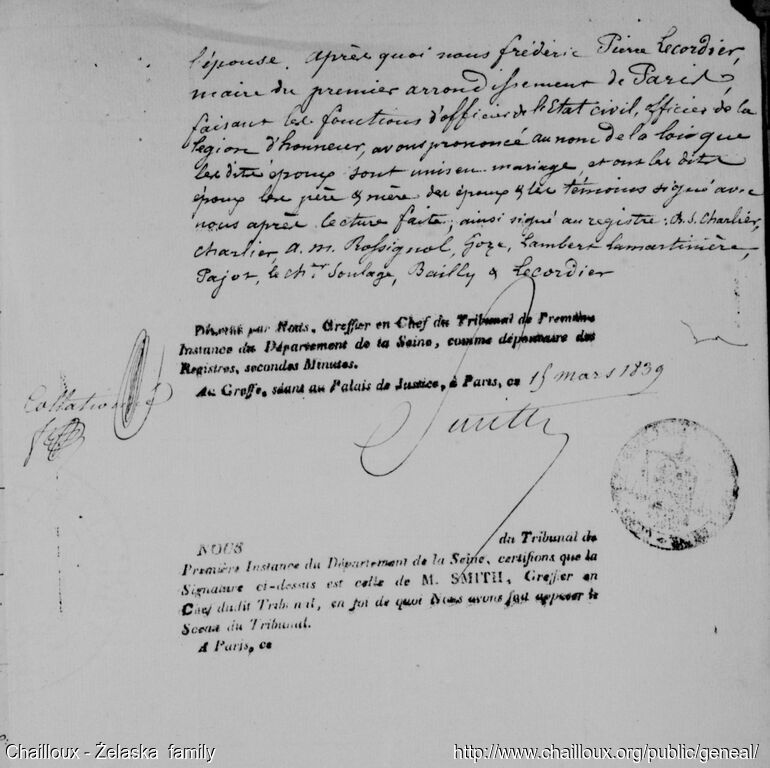 l'épouse. Après quoi nous frédéric Pierre Lecordier,
maire du premier arrondissement de Paris,
faisant les fonctions d'officier de l'Etat civil, officier de la
légion d'honneur, avons prononcé au nom de la loi que
les dits époux sont unis en mariage, et ont les dits
époux les père & mère des époux & les témoins signé avec
nous après lecture faite; ainsi signé au registre: A. S. Charlier,
Charlier, A. M. Rossignol, Goze, Lambert Lamartinière,
Pajot, le Chr Soulage, Bailly & Lecordier
Délivré par Nous, Greffier en Chef du Tribunal de Première
Instance du Département de la Seine, comme dépositaire des
Registres, secondes Minutes.
Au Greffe, séant au Palais de Justice, à Paris, ce 15 mars 1839
Collationné
Smith
NOUS du Tribunal de
Première Instance du Département de la Seine, certifions que la
Signature ci-dessus est celle de M. SMITH, Greffier en
Chef dudit Tribunal, en foi de quoi Nous avons fait apposer le
Sceau du Tribunal.
A Paris, ce
Chailloux - Żelaska family
http://www.chailloux.org/public/geneal/